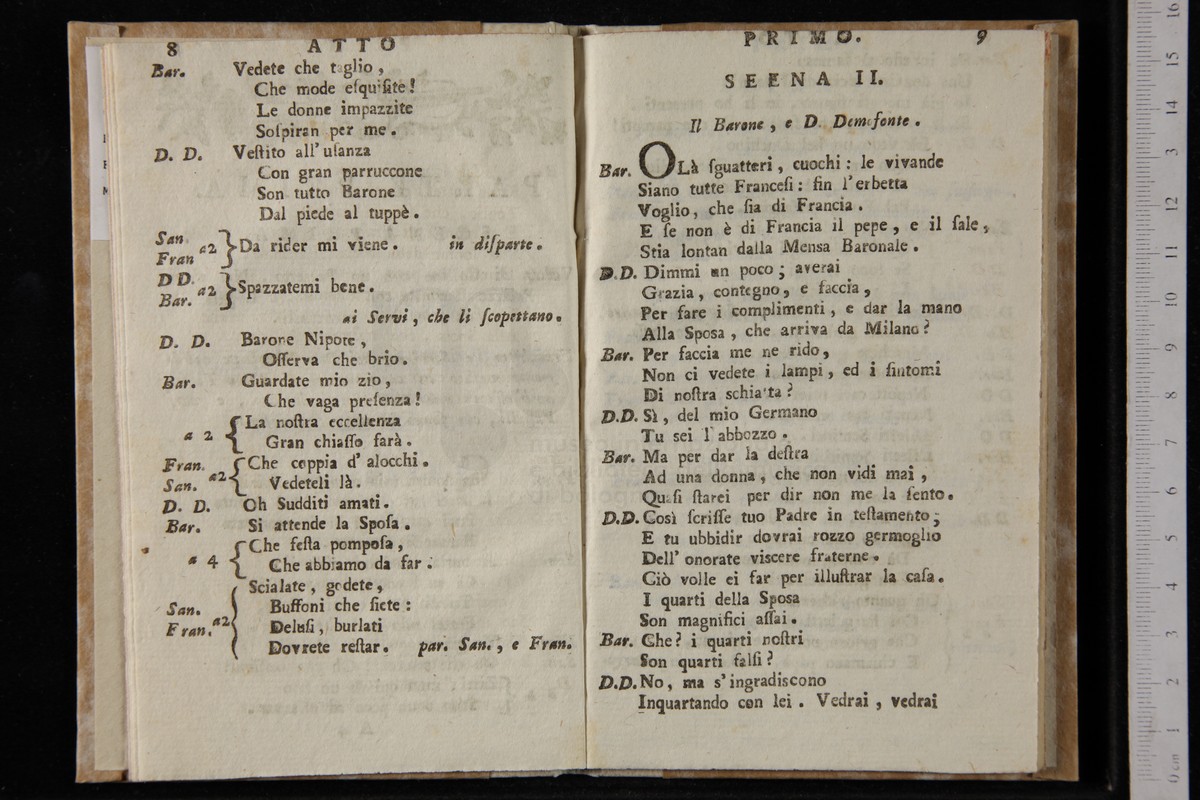 8 ATTO
Bar. Vedete che taglio,
Che mode eſquiſite!
Le donne impazzite
Soſpiran per me.
D. D. Veſtito all' uſanza
Con gran parruccone
Son tutto Barone
Dal piede al tuppè.
San. Fran a2 } Da rider mi viene. in diſparte.
D D. Bar. a2 } Spazzatemi bene.
ai Servi, che li ſcopettano.
D. D. Barone Nipote,
Oſſerva che brio.
Bar. Guardate mio zio,
Che vaga preſenza!
a 2 { La noſtra eccellenza
Gran chiaſſo farà.
Fran. San. a2 { Che coppia d' alocchi.
Vedeteli là.
D. D. Oh Sudditi amati.
Bar. Si attende la Spoſa.
a 4 { Che feſta pompoſa,
Che abbiamo da far.
San. Fran. a2 { Scialate, godete,
Buffoni che ſiete:
Deluſi, burlati
Dovrete reſtar. par. San., e Fran.
PRIMO. 9
SEENA II.
Il Barone, e D. Demofonte.
Bar. OLà ſguatteri, cuochi: le vivande
Siano tutte Franceſi: fin l'erbetta
Voglio, che ſia di Francia.
E ſe non è di Francia il pepe, e il ſale,
Stia lontan dalla Mensa Baronale.
D.D. Dimmi un poco; averai
Grazia, contegno, e faccia,
Per fare i complimenti, e dar la mano
Alla Sposa, che arriva da Milano?
Bar. Per faccia me ne rido,
Non ci vedete i lampi, ed i ſintomi
Di noſtra schiatta?
D.D. Sì, del mio Germano
Tu sei l'abbozzo.
Bar. Ma per dar la deſtra
Ad una donna, che non vidi mai,
Quaſi ſtarei per dir non me la ſento.
D.D. Così ſcriſſe tuo Padre in teſtamento;
E tu ubbidir dovrai rozzo germoglio
Dell' onorate viscere fraterne.
Ciò volle ei far per illuſtrar la caſa.
I quarti della Sposa
Son magnifici aſſai.
Bar. Che? i quarti noſtri
Son quarti falſi?
D.D. No, ma s'ingradiscono
Inquartando con lei. Vedrai, vedrai